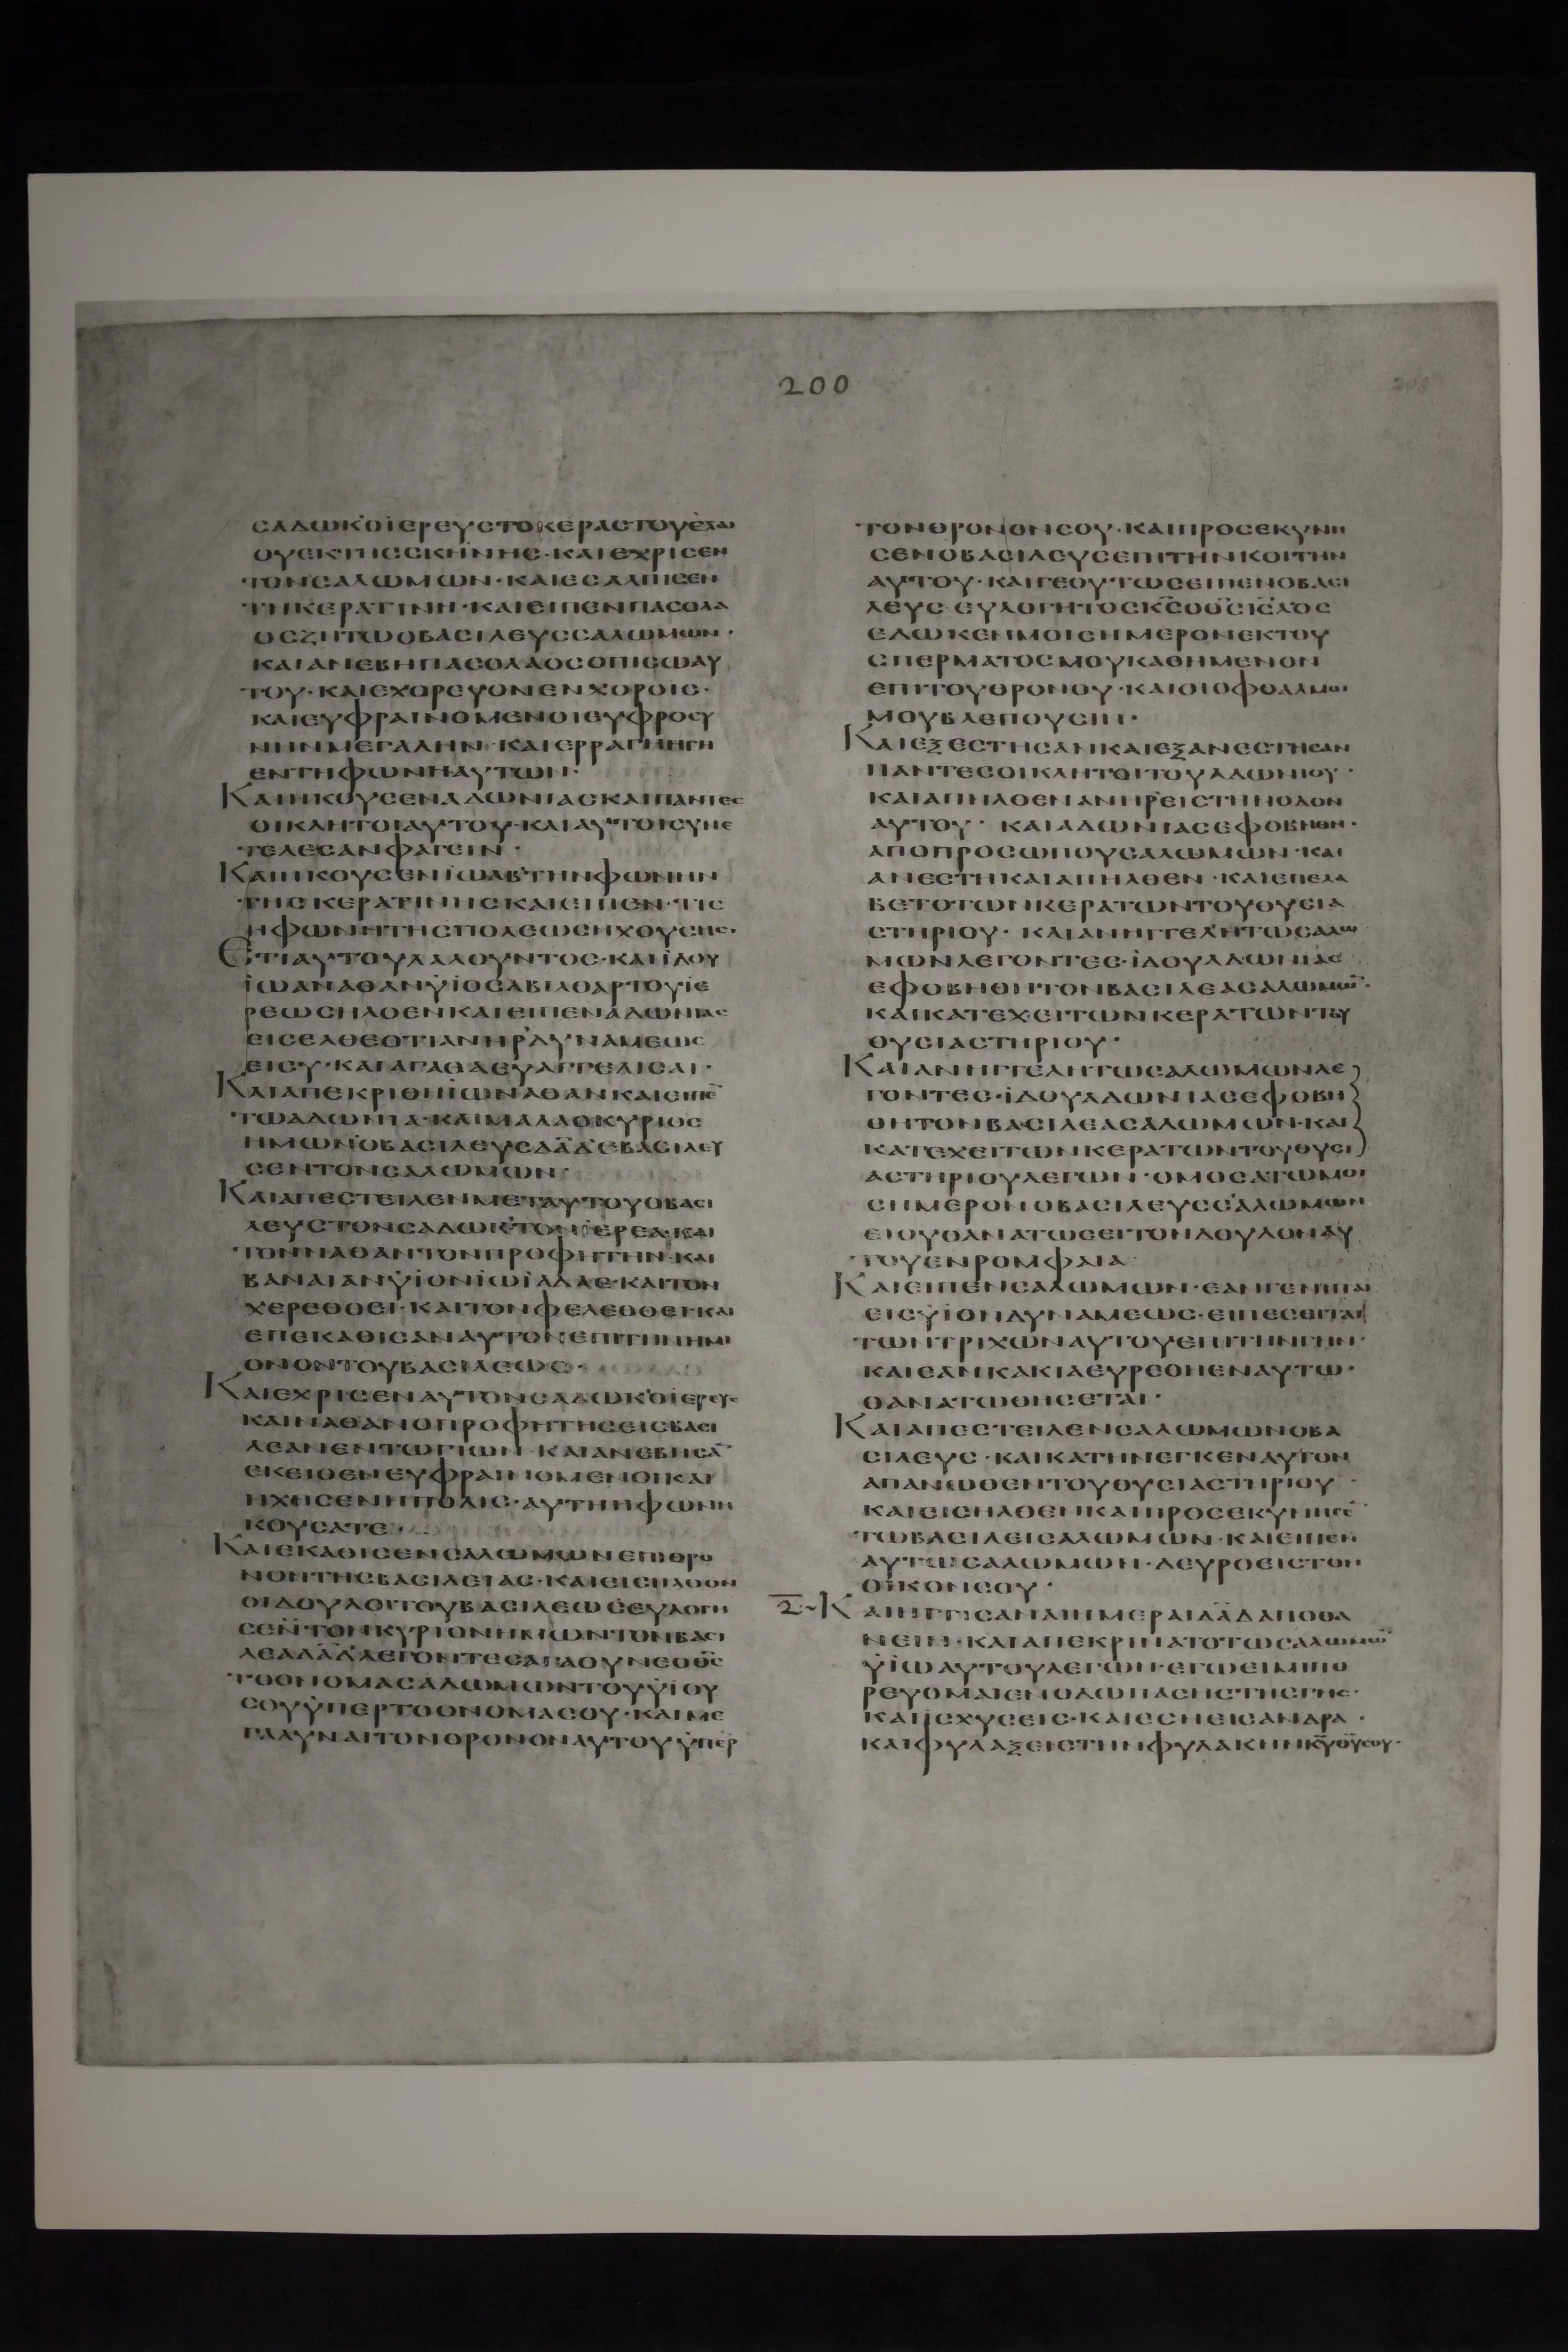 200
ϹΑΔΩΚΟΙΕΡΕΥϹΤΟΚΕΡΑϹΤΟΥΕΛΑΙ
ΟΥΕΚΤΗϹϹΚΗΝΗϹ·ΚΑΙΕΧΡΙϹΕΝ
ΤΟΝϹΑΛΩΜΩΝ·ΚΑΙΕϹΑΛΠΙϹΕΝ
ΤΗΚΕΡΑΤΙΝΗ·ΚΑΙΕΙΠΕΝΠΑϹΟΛΑ
ΟϹΖΗΤΩΟΒΑϹΙΛΕΥϹϹΑΛΩΜΩΝ·
ΚΑΙΑΝΕΒΗΠΑϹΟΛΑΟϹΟΠΙϹΩΑΥ
ΤΟΥ·ΚΑΙΕΧΟΡΕΥΟΝΕΝΧΟΡΟΙϹ·
ΚΑΙΕΥΦΡΑΙΝΟΜΕΝΟΙΕΥΦΡΟϹΥ
ΝΗΝΜΕΓΑΛΗΝ·ΚΑΙΕΡΡΑΓΗΗΓΗ
ΕΝΤΗΦΩΝΗΑΥΤΩΝ·
ΚΑΙΗΚΟΥϹΕΝΑΔΩΝΙΑϹΚΑΙΠΑΝΤΕϹ
ΟΙΚΛΗΤΟΙΑΥΤΟΥ·ΚΑΙΑΥΤΟΙϹΥΝΕ
ΤΕΛΕϹΑΝΦΑΓΕΙΝ·
ΚΑΙΗΚΟΥϹΕΝΪΩΑΒΤΗΝΦΩΝΗΝ
ΤΗϹΚΕΡΑΤΙΝΗϹΚΑΙΕΙΠΕΝ·ΤΙϹ
ΗΦΩΝΗΤΗϹΠΟΛΕΩϹΗΧΟΥϹΗϹ·
ΕΤΙΑΥΤΟΥΛΑΛΟΥΝΤΟϹ·ΚΑΙΪΔΟΥ
ΪΩΑΝΑΘΑΝΫΪΟϹΑΒΙΑΘΑΡΤΟΥΪΕ
ΡΕΩϹΗΛΘΕΝΚΑΙΕΙΠΕΝΑΔΩΝΙΑϹ
ΕΙϹΕΛΘΕΟΤΙΑΝΗΡΔΥΝΑΜΕΩϹ
ΕΙϹΥ·ΚΑΙΑΓΑΘΑΕΥΑΓΓΕΛΙϹΑΙ·
ΚΑΙΑΠΕΚΡΙΘΗΪΩΝΑΘΑΝΚΑΙΕΙΠΕ̅
ΤΩΑΔΩΝΙΑ·ΚΑΙΜΑΛΑΟΚΥΡΙΟϹ
ΗΜΩΝΟΒΑϹΙΛΕΥϹΔΑ̅Δ̅ΕΒΑϹΙΛΕΥ
ϹΕΝΤΟΝϹΑΛΩΜΩΝ·
ΚΑΙΑΠΕϹΤΕΙΛΕΝΜΕΤΑΥΤΟΥΟΒΑϹΙ
ΛΕΥϹΤΟΝϹΑΔΩΚΤΟΝΪΕΡΕΑ·ΚΑΙ
ΤΟΝΝΑΘΑΝΤΟΝΠΡΟΦΗΤΗΝ·ΚΑΙ
ΒΑΝΑΙΑΝΫΪΟΝΪΩΪΑΔΑΕ·ΚΑΙΤΟΝ
ΧΕΡΕΘΘΕΙ·ΚΑΙΤΟΝΦΕΛΕΘΘΕΙ·ΚΑΙ
ΕΠΕΚΑΘΙϹΑΝΑΥΤΟΝΕΠΙΤΗΝΗΜΙ
ΟΝΟΝΤΟΥΒΑϹΙΛΕΩϹ·
ΚΑΙΕΧΡΙϹΕΝΑΥΤΟΝϹΑΔΩΚΟΪΕΡΕΥϹ
ΚΑΙΝΑΘΑΝΟΠΡΟΦΗΤΗϹΕΙϹΒΑϹΙ
ΛΕΑΝΕΝΤΩΓΙΩΝ·ΚΑΙΑΝΕΒΗϹΑ̅
ΕΚΕΙΘΕΝΕΥΦΡΑΙΝΟΜΕΝΟΙΚΑΙ
ΗΧΗϹΕΝΗΠΟΛΙϹ·ΑΥΤΗΗΦΩΝΗΗ
ΚΟΥϹΑΤΕ·
ΚΑΙΕΚΑΘΙϹΕΝϹΑΛΩΜΩΝΕΠΙΘΡΟ
ΝΟΝΤΗϹΒΑϹΙΛΕΙΑϹ·ΚΑΙΕΙϹΗΛΘΟΝ
ΟΙΔΟΥΛΟΙΤΟΥΒΑϹΙΛΕΩϹΕΥΛΟΓΗ
ϹΕΝ·ΤΟΝΚΥΡΙΟΝΗΜΩΝΤΟΝΒΑϹΙ
ΛΕΑΔΑ̅Δ̅ΛΕΓΟΝΤΕϹΑΓΑΘΥΝΕΟΘ̅Ϲ̅
ΤΟΟΝΟΜΑϹΑΛΩΜΩΝΤΟΥΫΪΟΥ
ϹΟΥΫΠΕΡΤΟΟΝΟΜΑϹΟΥ·ΚΑΙΜΕ
ΓΑΛΥΝΑΙΤΟΝΘΡΟΝΟΝΑΥΤΟΥΫΠΕΡ
ΤΟΝΘΡΟΝΟΝϹΟΥ·ΚΑΙΠΡΟϹΕΚΥΝΗ
ϹΕΝΟΒΑϹΙΛΕΥϹΕΠΙΤΗΝΚΟΙΤΗΝ
ΑΥΤΟΥ·ΚΑΙΓΕΟΥΤΩϹΕΙΠΕΝΟΒΑϹΙ
ΛΕΥϹ·ΕΥΛΟΓΗΤΟϹΚ̅Ϲ̅ΟΘ̅Ϲ̅ΙϹΛ̅ΟϹ
ΕΔΩΚΕΝΜΟΙϹΗΜΕΡΟΝΕΚΤΟΥ
ϹΠΕΡΜΑΤΟϹΜΟΥΚΑΘΗΜΕΝΟΝ
ΕΠΙΤΟΥΘΡΟΝΟΥ·ΚΑΙΟΙΟΦΘΑΛΜΟΙ
ΜΟΥΒΛΕΠΟΥϹΙΝ·
ΚΑΙΕΞΕϹΤΗϹΑΝΚΑΙΕΞΑΝΕϹΤΗϹΑΝ
ΠΑΝΤΕϹΟΙΚΛΗΤΟΙΤΟΥΑΔΩΝΙΟΥ·
ΚΑΙΑΠΗΛΘΕΝΑΝΗΡΕΙϹΤΗΝΟΔΟΝ
ΑΥΤΟΥ· ΚΑΙΑΔΩΝΙΑϹΕΦΟΒΗΘΗ·
ΑΠΟΠΡΟϹΩΠΟΥϹΑΛΩΜΩΝ·ΚΑΙ
ΑΝΕϹΤΗΚΑΙΑΠΗΛΘΕΝ·ΚΑΙΕΠΕΛΑ
ΒΕΤΟΤΩΝΚΕΡΑΤΩΝΤΟΥΘΥϹΙΑ
ϹΤΗΡΙΟΥ· ΚΑΙΑΝΗΓΓΕΛΗΤΩϹΑΛΩ
ΜΩΝΛΕΓΟΝΤΕϹ·ΪΔΟΥΑΔΩΝΙΑϹ
ΕΦΟΒΗΘΗΤΟΝΒΑϹΙΛΕΑϹΑΛΩΜΩ̅·
ΚΑΙΚΑΤΕΧΕΙΤΩΝΚΕΡΑΤΩΝΤΟΥ
ΘΥϹΙΑϹΤΗΡΙΟΥ·
ΚΑΙΑΝΗΓΓΕΛΗΤΩϹΑΛΩΜΩΝΛΕ
ΓΟΝΤΕϹ·ΪΔΟΥΑΔΩΝΙΑϹΕΦΟΒΗ
ΘΗΤΟΝΒΑϹΙΛΕΑϹΑΛΩΜΩΝ·ΚΑΙ
ΚΑΤΕΧΕΙΤΩΝΚΕΡΑΤΩΝΤΟΥΘΥϹΙ
ΑϹΤΗΡΙΟΥΛΕΓΩΝ·ΟΜΟϹΑΤΩΜΟΙ
ϹΗΜΕΡΟΝΟΒΑϹΙΛΕΥϹϹΑΛΩΜΩΝ
ΕΙΟΥΘΑΝΑΤΩϹΕΙΤΟΝΔΟΥΛΟΝΑΥ
ΤΟΥΕΝΡΟΜΦΑΙΑ
ΚΑΙΕΙΠΕΝϹΑΛΩΜΩΝ·ΕΑΝΓΕΝΗΤΑΙ
ΕΙϹΫΪΟΝΔΥΝΑΜΕΩϹ·ΕΙΠΕϹΕΙΤΑΙ
ΤΩΝΤΡΙΧΩΝΑΥΤΟΥΕΠΙΤΗΝΓΗΝ·
ΚΑΙΕΑΝΚΑΚΙΑΕΥΡΕΘΗΕΝΑΥΤΩ·
ΘΑΝΑΤΩΘΗϹΕΤΑΙ·
ΚΑΙΑΠΕϹΤΕΙΛΕΝϹΑΛΩΜΩΝΟΒΑ
ϹΙΛΕΥϹ·ΚΑΙΚΑΤΗΝΕΓΚΕΝΑΥΤΟΝ
ΑΠΑΝΩΘΕΝΤΟΥΘΥϹΙΑϹΤΗΡΙΟΥ·
ΚΑΙΕΙϹΗΛΘΕΝΚΑΙΠΡΟϹΕΚΥΝΗϹΕ̅
ΤΩΒΑϹΙΛΕΙϹΑΛΩΜΩΝ·ΚΑΙΕΙΠΕΝ
ΑΥΤΩϹΑΛΩΜΩΝ·ΔΕΥΡΟΕΙϹΤΟΝ
ΟΙΚΟΝϹΟΥ·
2~ΚΑΙΗΓΓΙϹΑΝΑΙΗΜΕΡΑΙΔΑ̅Δ̅ΑΠΟΘΑ
ΝΕΙΝ·ΚΑΙΑΠΕΚΡΙΝΑΤΟΤΩϹΑΛΩΜΩ̅
ΫΪΩΑΥΤΟΥΛΕΓΩΝ·ΕΓΩΕΙΜΙΠΟ
ΡΕΥΟΜΑΙΕΝΟΔΩΠΑϹΗϹΤΗϹΓΗϹ·
ΚΑΙΪϹΧΥϹΕΙϹ·ΚΑΙΕϹΗΕΙϹΑΝΔΡΑ·
ΚΑΙΦΥΛΑΞΕΙϹΤΗΝΦΥΛΑΚΗΝΚ̅Υ̅Θ̅Υ̅ϹΟΥ·